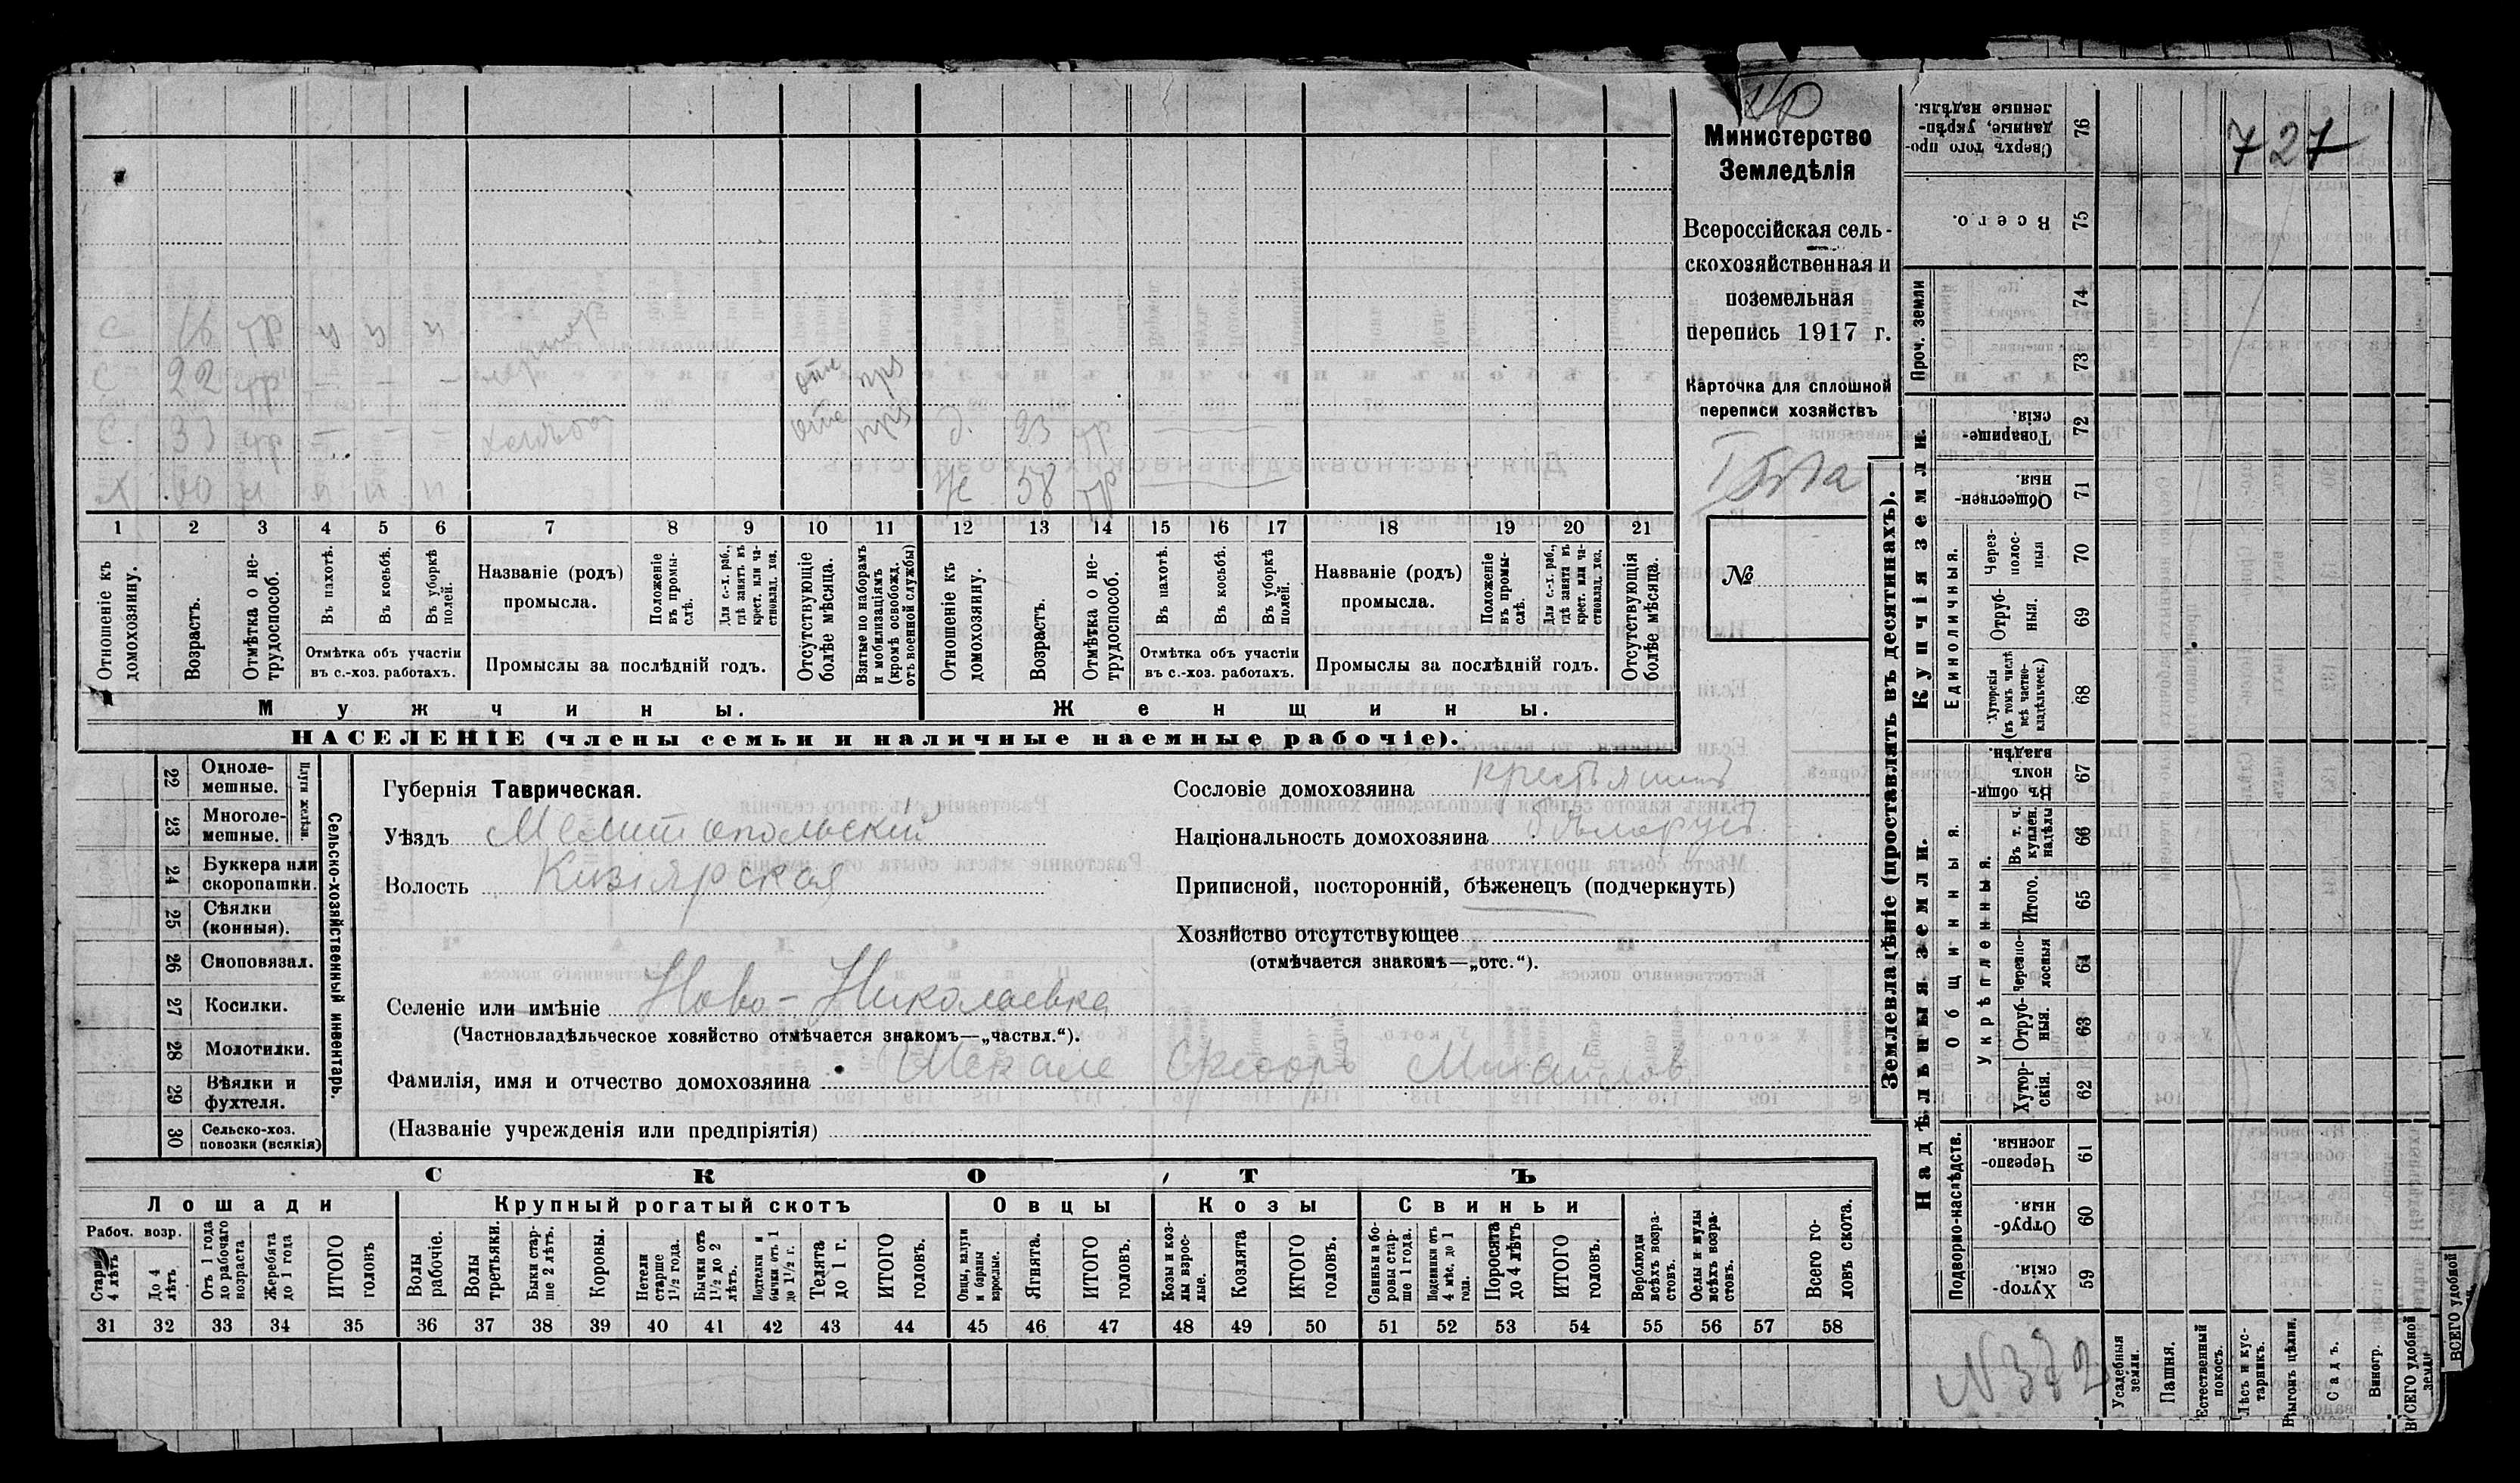 Министерство
Земледѣлія
Всероссійская сель-
скохозяйственная и
поземельная
перепись 1917 г.
Карточка для сплошной
переписи хозяйствъ
№
С 16 тр
С 22 тр — — — отс прз
С. 33 тр — — — отс прз д. 23 тр
Х 60 н н н н ж 58 тр
1 2 3 4 5 6 7 8 9 10 11 12 13 14 15 16 17 18 19 20 21
Отношеніе къ домохозяину.
Возрастъ.
Отмѣтка о не-трудоспособ.
Въ пахотѣ.
Въ косьбѣ.
Въ уборкѣ полей.
Отмѣтка объ участіи въ с.-хоз. работахъ.
Названіе (родъ) промысла.
Положеніе въ промы-слѣ.
Для с.-х. раб., гдѣ занятъ въ крест. или ча-стновлад. хоз.
Промыслы за послѣдній годъ.
Отсутствующіе болѣе мѣсяца.
Взятые по наборамъ и мобилизаціямъ (кромѣ освобожд. отъ военной службы)
Отношеніе къ домохозяину.
Возрастъ.
Отмѣтка о не-трудоспособ.
Въ пахотѣ.
Въ косьбѣ.
Въ уборкѣ полей.
Отмѣтка объ участіи въ с.-хоз. работахъ.
Названіе (родъ) промысла.
Положеніе въ промы-слѣ.
Для с.-х. раб., гдѣ занята въ крест. или ча-стновлад. хоз.
Промыслы за послѣдній годъ.
Отсутствующія болѣе мѣсяца.
Мужчины. Женщины.
НАСЕЛЕНІЕ (члены семьи и наличные наемные рабочіе).
22 Однолемешные.
23 Многолемешные.
Плуги желѣзн.
24 Буккера или скоропашки.
25 Сѣялки (конныя).
26 Сноповязал.
27 Косилки.
28 Молотилки.
29 Вѣялки и фухтеля.
30 Сельско-хоз. повозки (всякія)
Сельско-хозяйственный инвентарь.
Губернія Таврическая.
Уѣздъ Мелитопольскій
Волость Кизіярская
Сословіе домохозяина крестьянинъ
Національность домохозяина бѣлорусъ
Приписной, посторонній, бѣженецъ (подчеркнуть)
Хозяйство отсутствующее
(отмѣчается знакомъ—„отс.“).
Селеніе или имѣніе Ново-Николаевка
(Частновладѣльческое хозяйство отмѣчается знакомъ—„частвл.“).
Фамилія, имя и отчество домохозяина Михайлов
(Названіе учрежденія или предпріятія)
СКОТЪ
Лошади Крупный рогатый скотъ Овцы Козы Свиньи
Рабоч. возр.
Старше 4 лѣтъ
До 4 лѣтъ
Отъ 1 года до рабочаго возраста
Жеребята до 1 года
ИТОГО головъ
Волы рабочіе.
Волы третьяки.
Быки стар-ше 2 лѣтъ.
Коровы.
Нетели старше 1½ года.
Бычки отъ 1½ до 2 лѣтъ.
Подтелки и бычки отъ 1 до 1½ г.
Телята до 1 г.
ИТОГО головъ.
Овцы, валухи и бараны взрослые.
Ягнята.
ИТОГО головъ.
Козы и коз-лы взрос-лые.
Козлята
ИТОГО головъ.
Свиньи и бо-ровы стар-ше 1 года.
Подсвинки отъ 4 мѣс. до 1 года.
Поросята до 4 лѣтъ
ИТОГО головъ.
Верблюды всѣхъ возра-стовъ.
Ослы и мулы всѣхъ возра-стовъ.
Всего го-ловъ скота.
31 32 33 34 35 36 37 38 39 40 41 42 43 44 45 46 47 48 49 50 51 52 53 54 55 56 57 58
Землевладѣніе (проставлять въ десятинахъ).
Купчія земли.
Надѣльныя земли.
76 Сверхъ того про-данные, укрѣп-ленные надѣлы.
75 Всего.
Проч. земли
74
73
72 Товарище-скія.
71 Обществен-ныя.
Единоличныя.
70 Через-полос-ныя
69 Отруб-ныя.
68 Хуторскія (въ томъ числѣ всѣ частно-владѣльческ.)
Общинныя.
67 Въ общин-номъ владѣн.
Укрѣпленныя.
66 Въ т. ч. куплен. надѣлы
65 Итого.
64 Черезпо-лосныя
63 Отруб-ныя.
62 Хутор-скія.
Подворно-наслѣдств.
61 Черезпо-лосныя.
60 Отруб-ныя
59 Хутор-скія.
727
N 372
Усадебныя земли.
Пашня.
Естественный покосъ.
Лѣсъ и кус-тарникъ.
Выгонъ цѣлин.
Садъ.
Виногр.
ВСЕГО удобной земли
ВСЕГО удобной